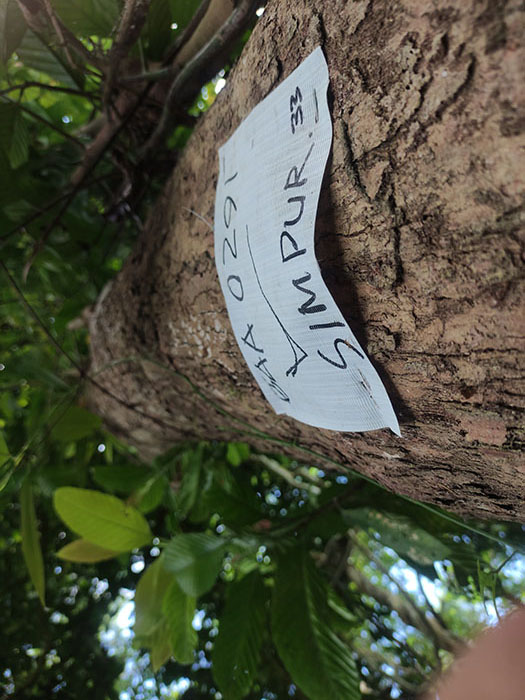 BAA 0291
SIMPUR. 33